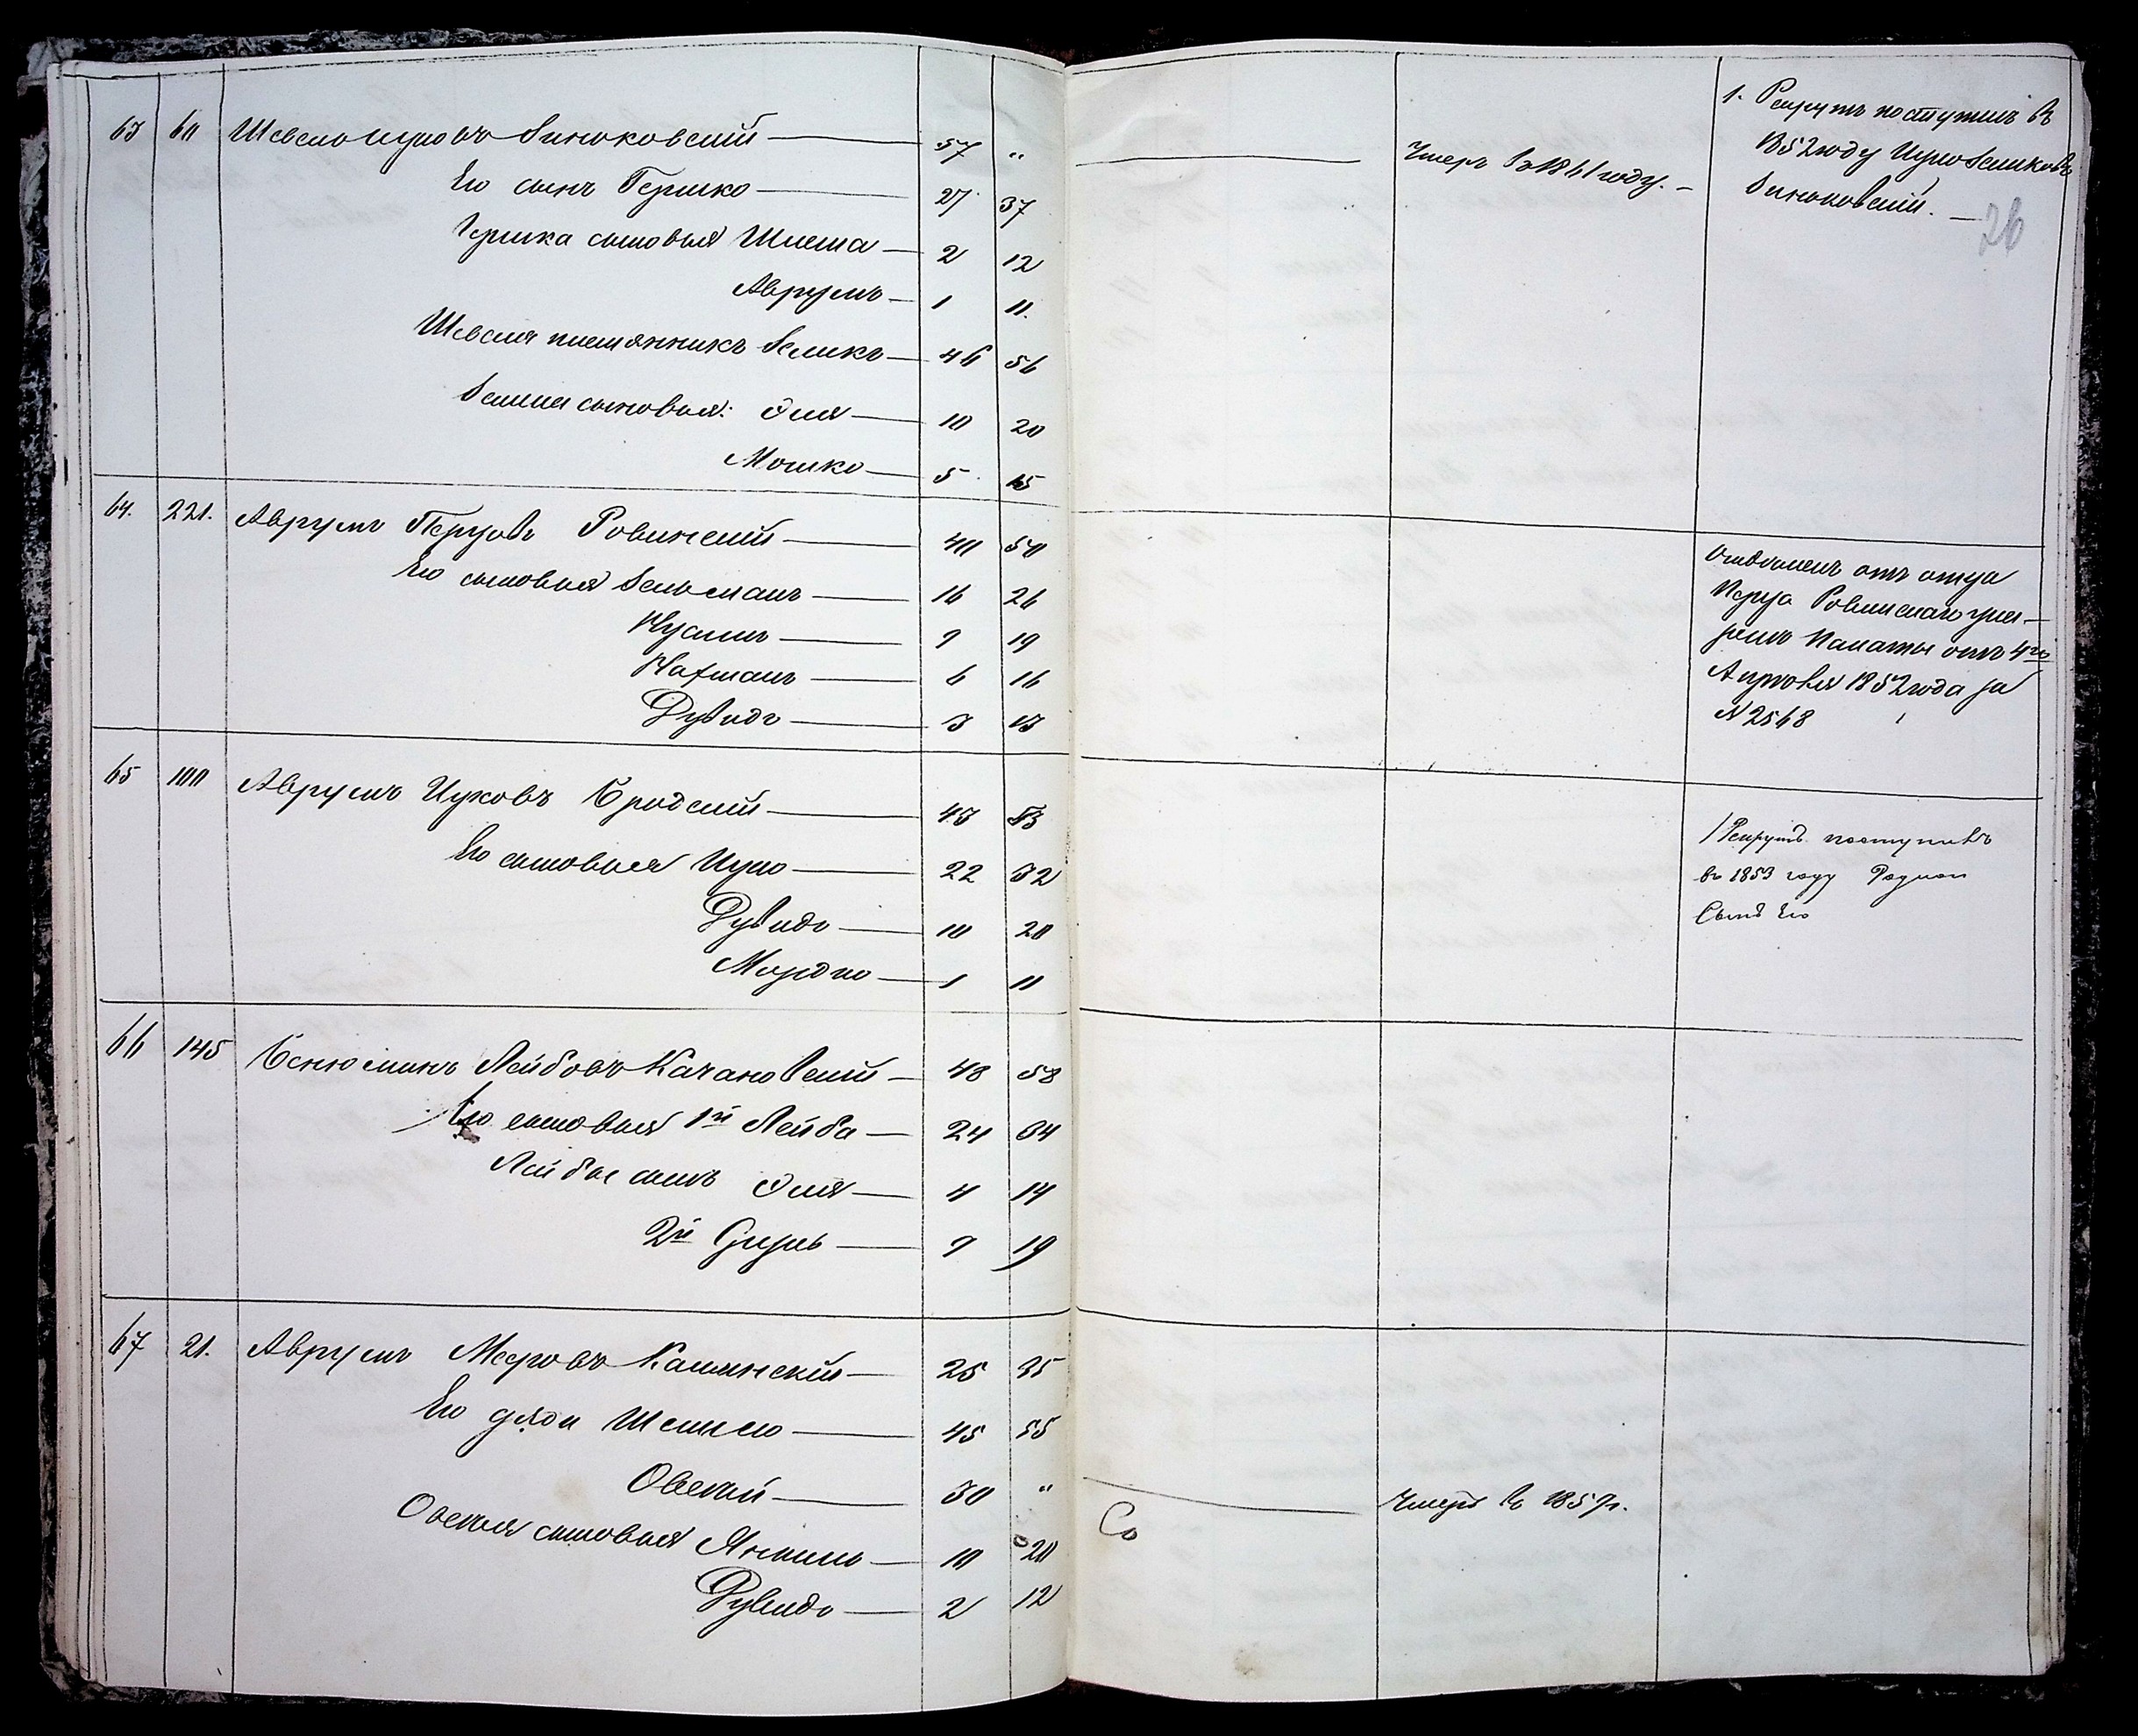 63 60 Шевель Ицковъ Зиньковскій — 57 „
Его сынъ Гершко — 27 37
Гершка сыновья Шлема — 2 12
Аврумъ — 1 11.
Шевеля племянникъ Зеликъ — 46 56
Зелика сыновья: Эля — 10 20
Мошко — 5 15
64. 221. Аврумъ Перцовъ Ровинскій — 40 50
Его сыновья Зельманъ — 16 26
Нусинъ — 9 19
Нахманъ — 6 16
Дувидъ — 3 13
65 100 Аврумъ Ицковъ Бродскій — 43 53
Его сыновья Ицко — 22 32
Дувидъ — 10 20
Мордко — 1 11
66 145 Беньюминъ Лейбовъ Качановскій — 48 58
Его сыновья 1й Лейба — 24 34
Лейбы сынъ Эля — 4 14
2й — 9 19
67 21. Аврумъ Мееровъ Каминскій — 25 35
Его дяди — 45 55
Овсей — 30 „
Овсея сыновья Янкель — 10 20
Дувидъ — 2 12
Умеръ въ 1861 году. —
1. Рекрутъ поступилъ въ
1852 году Ицко Зеликовъ
Зиньковскій. —
26
отъ отца
Перца Ровинскаго
Палаты отъ 4го
1852 года за
N 2568
1 Рекрутъ поступивъ
въ 1853 году
Сынъ Его
Со
Умеръ въ 1857 г.